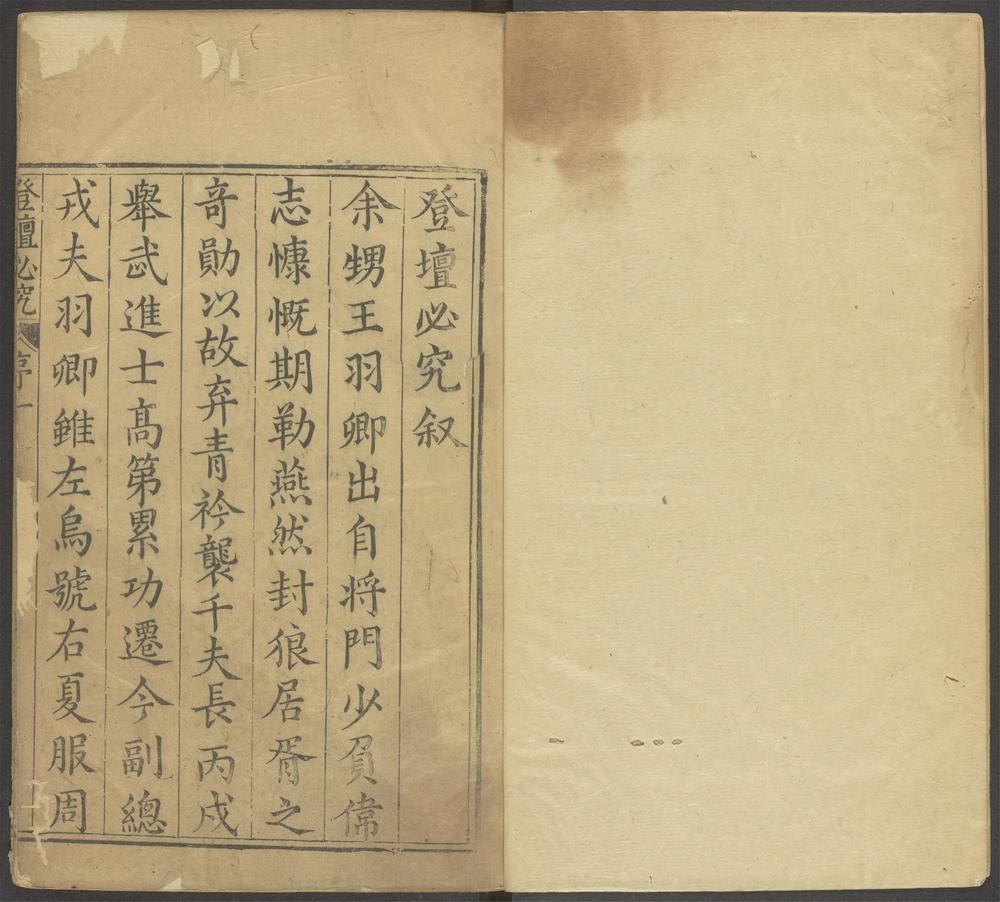 登壇必究叙
余甥王羽卿出自将門少負偉
志慷慨期勒燕然封狼居胥之
奇勛以故弃青衿襲千夫長丙戍
舉武進士高第累功遷今副總
戎夫羽卿雖左烏號右夏服周
登壇必究 序 一